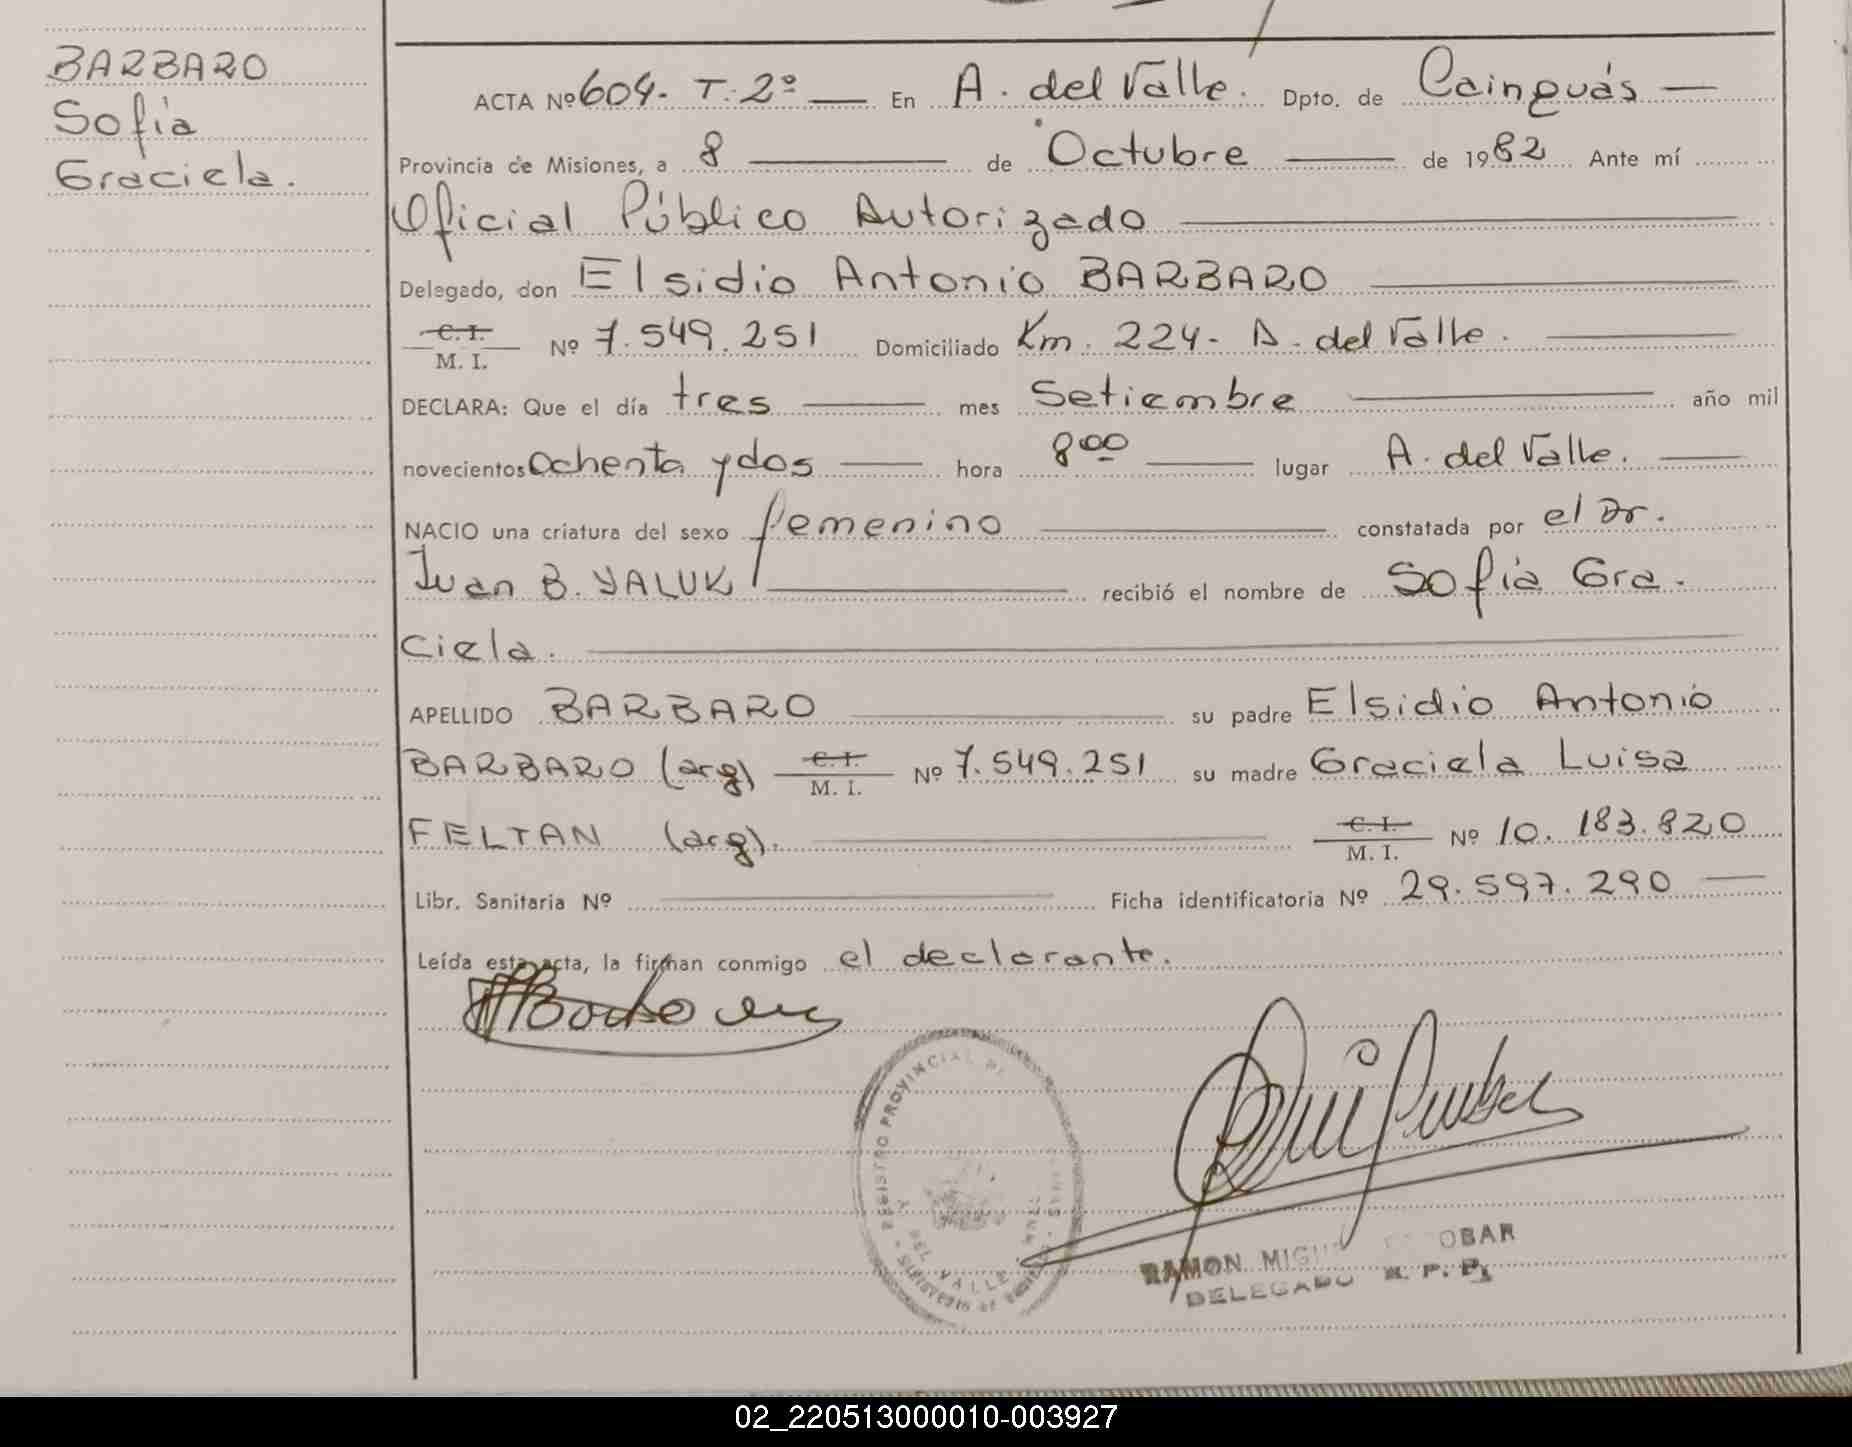 BARBARO
Sofía
Graciela.
ACTA Nº 604- T. 2º — En A. del Valle. Dpto. de Cainguás —
Provincia de Misiones, a 8 — de Octubre — de 1982 Ante mí
Oficial Público Autorizado —
Delegado, don Elsidio Antonio BARBARO —
C. I.
M. I. Nº 7.549.251 Domiciliado Km. 224- A. del Valle. —
DECLARA: Que el día tres — mes Setiembre — año mil
novecientos Ochenta y dos — hora 8 00 — lugar A. del Valle. —
NACIO una criatura del sexo femenino — constatada por el Dr.
Juan B. YALUK — recibió el nombre de Sofía Gra-
ciela. —
APELLIDO BARBARO — su padre Elsidio Antonio
BARBARO (arg) C. I. M. I. Nº 7.549.251 su madre Graciela Luisa
FELTAN (arg). — C. I. M. I. Nº 10.183.820
Libr. Sanitaria Nº — Ficha identificatoria Nº 29.597.290 —
Leída esta acta, la firman conmigo el declarante.
REGISTRO PROVINCIAL DE
DEL VALLE
RAMON MIGU OBAR
DELEGADO R. P. P.
02_220513000010-003927